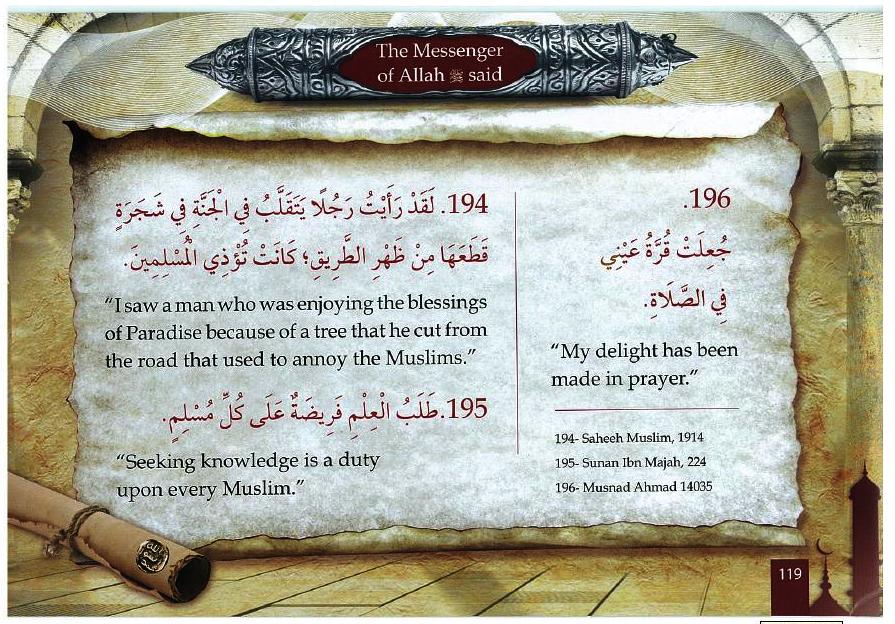 The Messenger
of Allah ﷺ said
194. لَقَدْ رَأَيْتُ رَجُلًا يَتَقَلَّبُ فِي الْجَنَّةِ فِي شَجَرَةٍ
قَطَعَهَا مِنْ ظَهْرِ الطَّرِيقِ؛ كَانَتْ تُؤْذِي الْمُسْلِمِينَ.
“I saw a man who was enjoying the blessings
of Paradise because of a tree that he cut from
the road that used to annoy the Muslims.”
195. طَلَبُ الْعِلْمِ فَرِيضَةٌ عَلَى كُلِّ مُسْلِمٍ.
“Seeking knowledge is a duty
upon every Muslim.”
196.
جُعِلَتْ قُرَّةُ عَيْنِي
فِي الصَّلَاةِ.
“My delight has been
made in prayer.”
194- Saheeh Muslim, 1914
195- Sunan Ibn Majah, 224
196- Musnad Ahmad 14035
الله
رسول
محمد
119